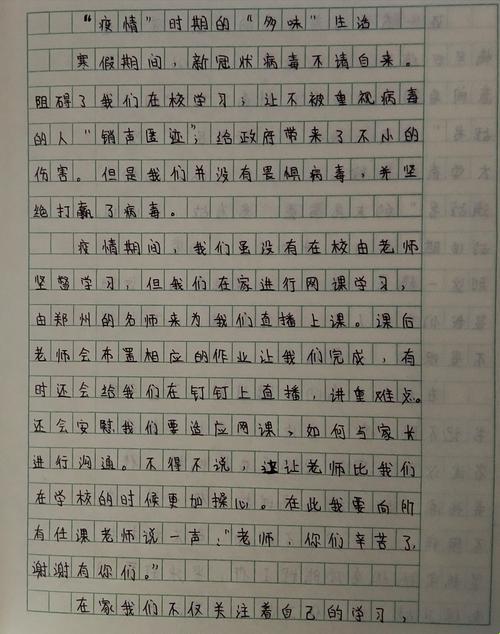 “疫情”时期的“多味”生活
寒假期间，新冠状病毒不请自来。
阻碍了我们在校学习，让不被重视病毒
的人“销声匿迹”，给政府带来了不小的
伤害。但是我们并没有畏惧病毒，并坚
绝打赢了病毒。
疫情期间，我们虽没有在校由老师
坚督学习，但我们在家进行网课学习，
由郑州的名师来为我们直播上课。课后
老师会布置相应的作业让我们完成，有
时还会给我们在钉钉上直播，讲重难点。
还会安慰我们要适应网课，如何与家长
进行沟通。不得不说，这让老师比我们
在学校的时候更加操心。在此我要向所
有任课老师说一声：“老师，你们辛苦了，
谢谢有你们。”
在家我们不仅关注着自己的学习，